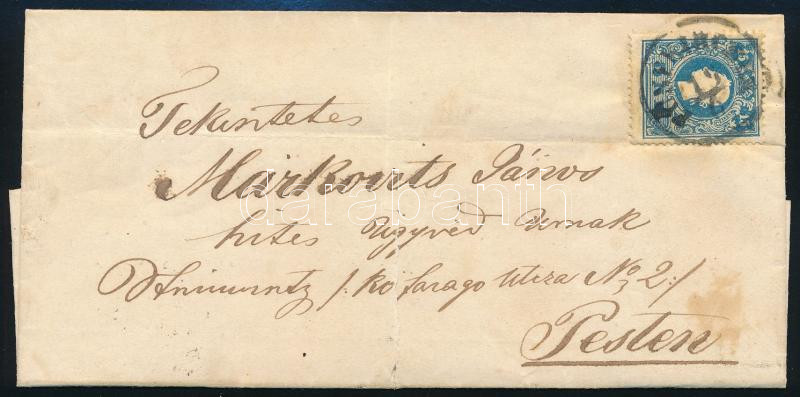 Tekintetes
Márkovits János
hites ügyvéd Urnak
/: kő faragó Utcza No 2 :/
Pesten
darabanth